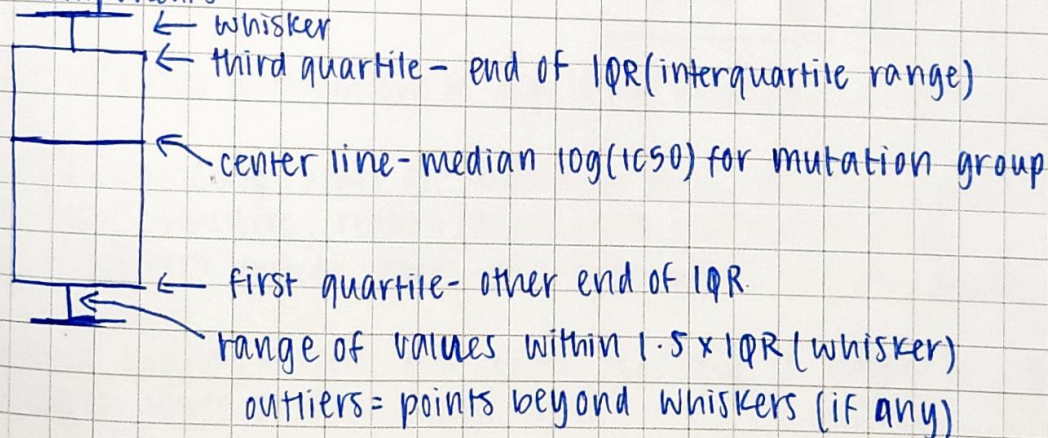 ← whisker
← third quartile - end of IQR (interquartile range)
center line - median log(IC50) for mutation group
← first quartile - other end of IQR.
range of values within 1.5 x IQR (whisker)
outliers = points beyond whiskers (if any)